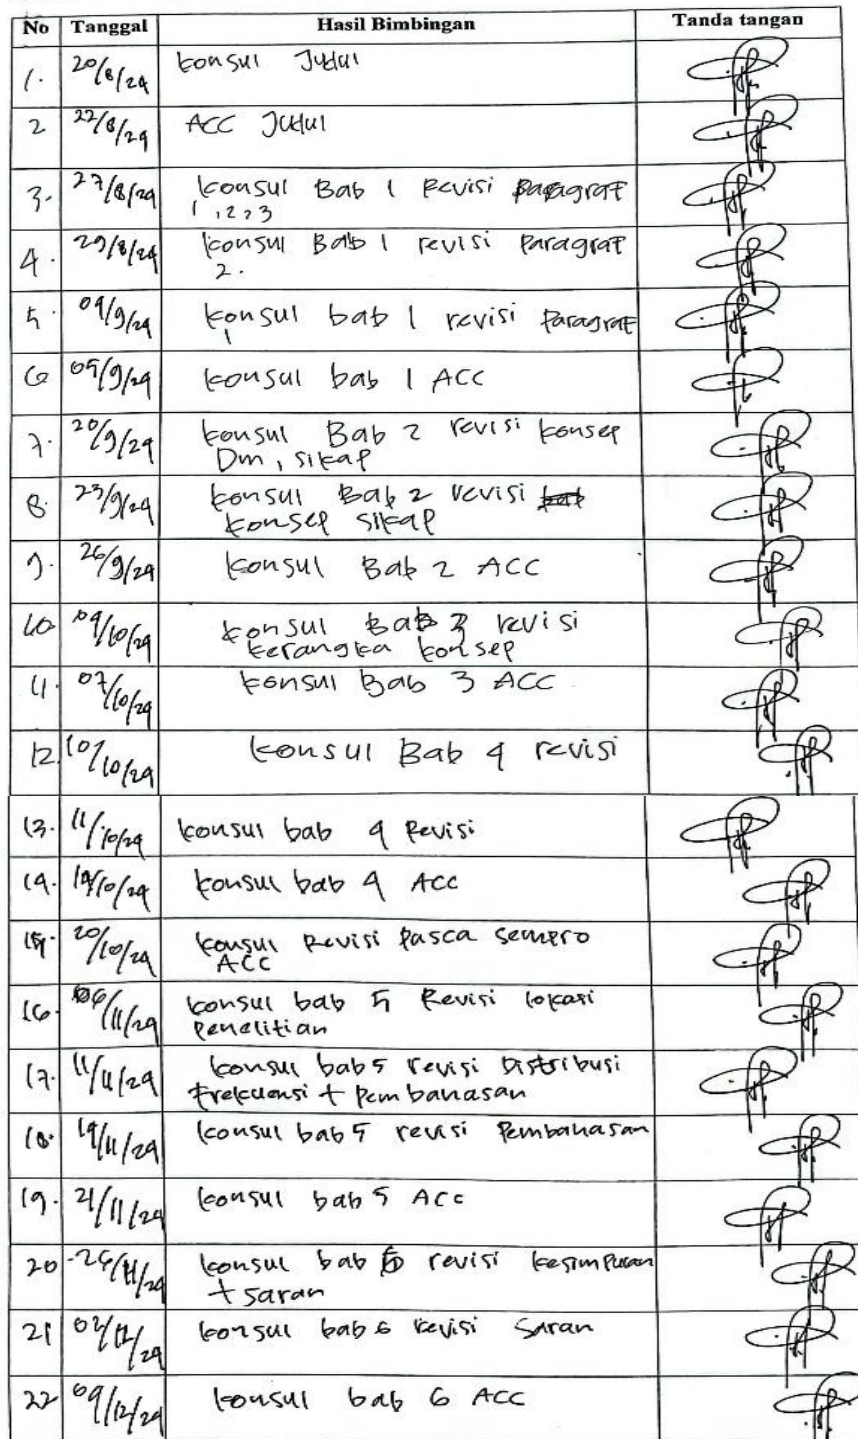 No Tanggal Hasil Bimbingan Tanda tangan
1. 20/8/24 konsul Judul
2 22/8/24 ACC Judul
3. 27/8/24 konsul Bab 1 Revisi paragraf
1,2,3
4. 29/8/24 konsul Bab 1 revisi Paragraf
2.
5. 04/9/24 konsul bab 1 revisi Paragraf
1
6 05/9/24 konsul bab 1 ACC
7. 20/9/24 konsul Bab 2 revisi konsep
Dm, sikap
8. 23/9/24 konsul Bab 2 revisi
konsep sikap
9. 26/9/24 konsul Bab 2 ACC
10 04/10/24 konsul Bab 3 revisi
kerangka konsep
11. 07/10/24 konsul Bab 3 ACC
12. 10/10/24 konsul Bab 4 revisi
13. 11/10/24 konsul bab 4 Revisi
14. 14/10/24 konsul bab 4 ACC
15. 20/10/24 konsul Revisi Pasca sempro
ACC
16. 06/11/24 konsul bab 5 Revisi lokasi
Penelitian
17. 11/11/24 konsul bab 5 revisi Distribusi
frekuensi + Pembahasan
18. 19/11/24 konsul bab 5 revisi Pembahasan
19. 21/11/24 konsul bab 5 ACC
20 26/11/24 konsul bab 6 revisi kesimpulan
+ saran
21 02/12/24 konsul bab 6 Revisi Saran
22 09/12/24 konsul bab 6 ACC